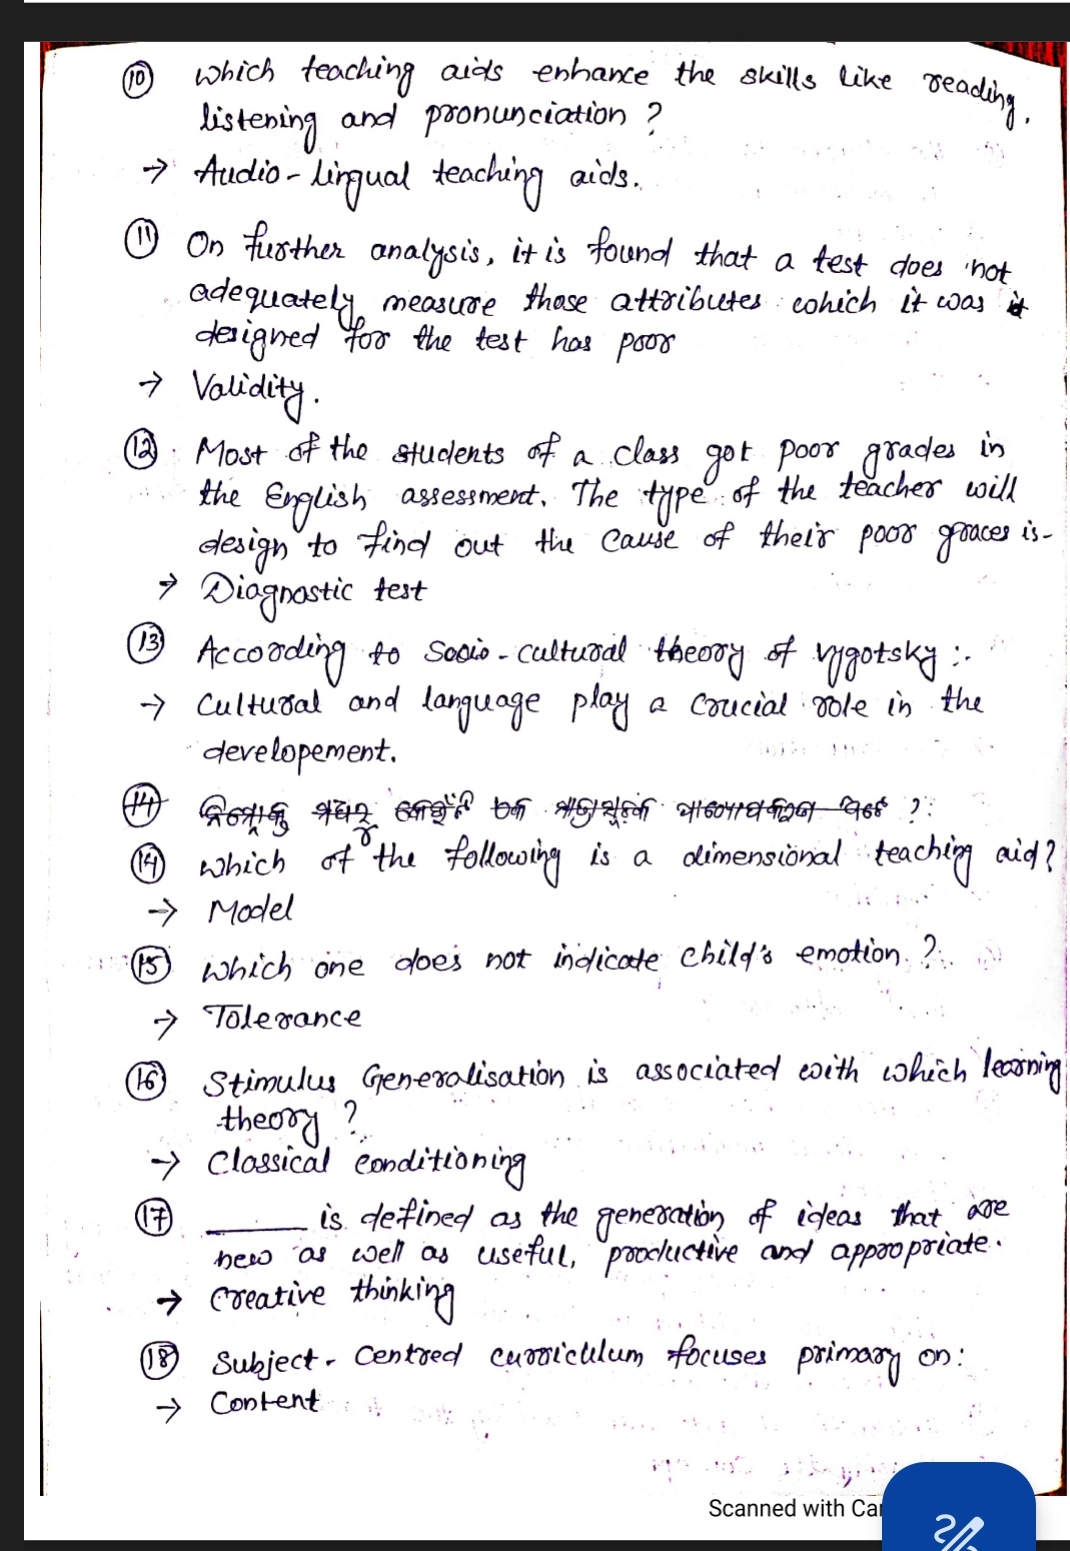 10 which teaching aids enhance the skills like reading,
listening and pronunciation ?
→ Audio-lingual teaching aids.
11 On further analysis, it is found that a test does not
adequately measure those attributes which it was
designed for the test has poor
→ Validity.
12 Most of the students of a class got poor grades in
the English assessment. The type of the teacher will
design to find out the cause of their poor graces is-
→ Diagnostic test
13 According to Socio-cultural theory of vygotsky :-
→ Cultural and language play a crucial role in the
developement.
14
14 which of the following is a dimensional teaching aid?
→ Model
15 which one does not indicate child's emotion ?
→ Tolerance
16 Stimulus Generalisation is associated with which learning
theory ?
→ Classical conditioning
17 ______ is defined as the generation of ideas that are
new as well as useful, productive and appropriate.
→ Creative thinking
18 Subject-Centred curriculum focuses primary on:
→ Content
Scanned with Ca